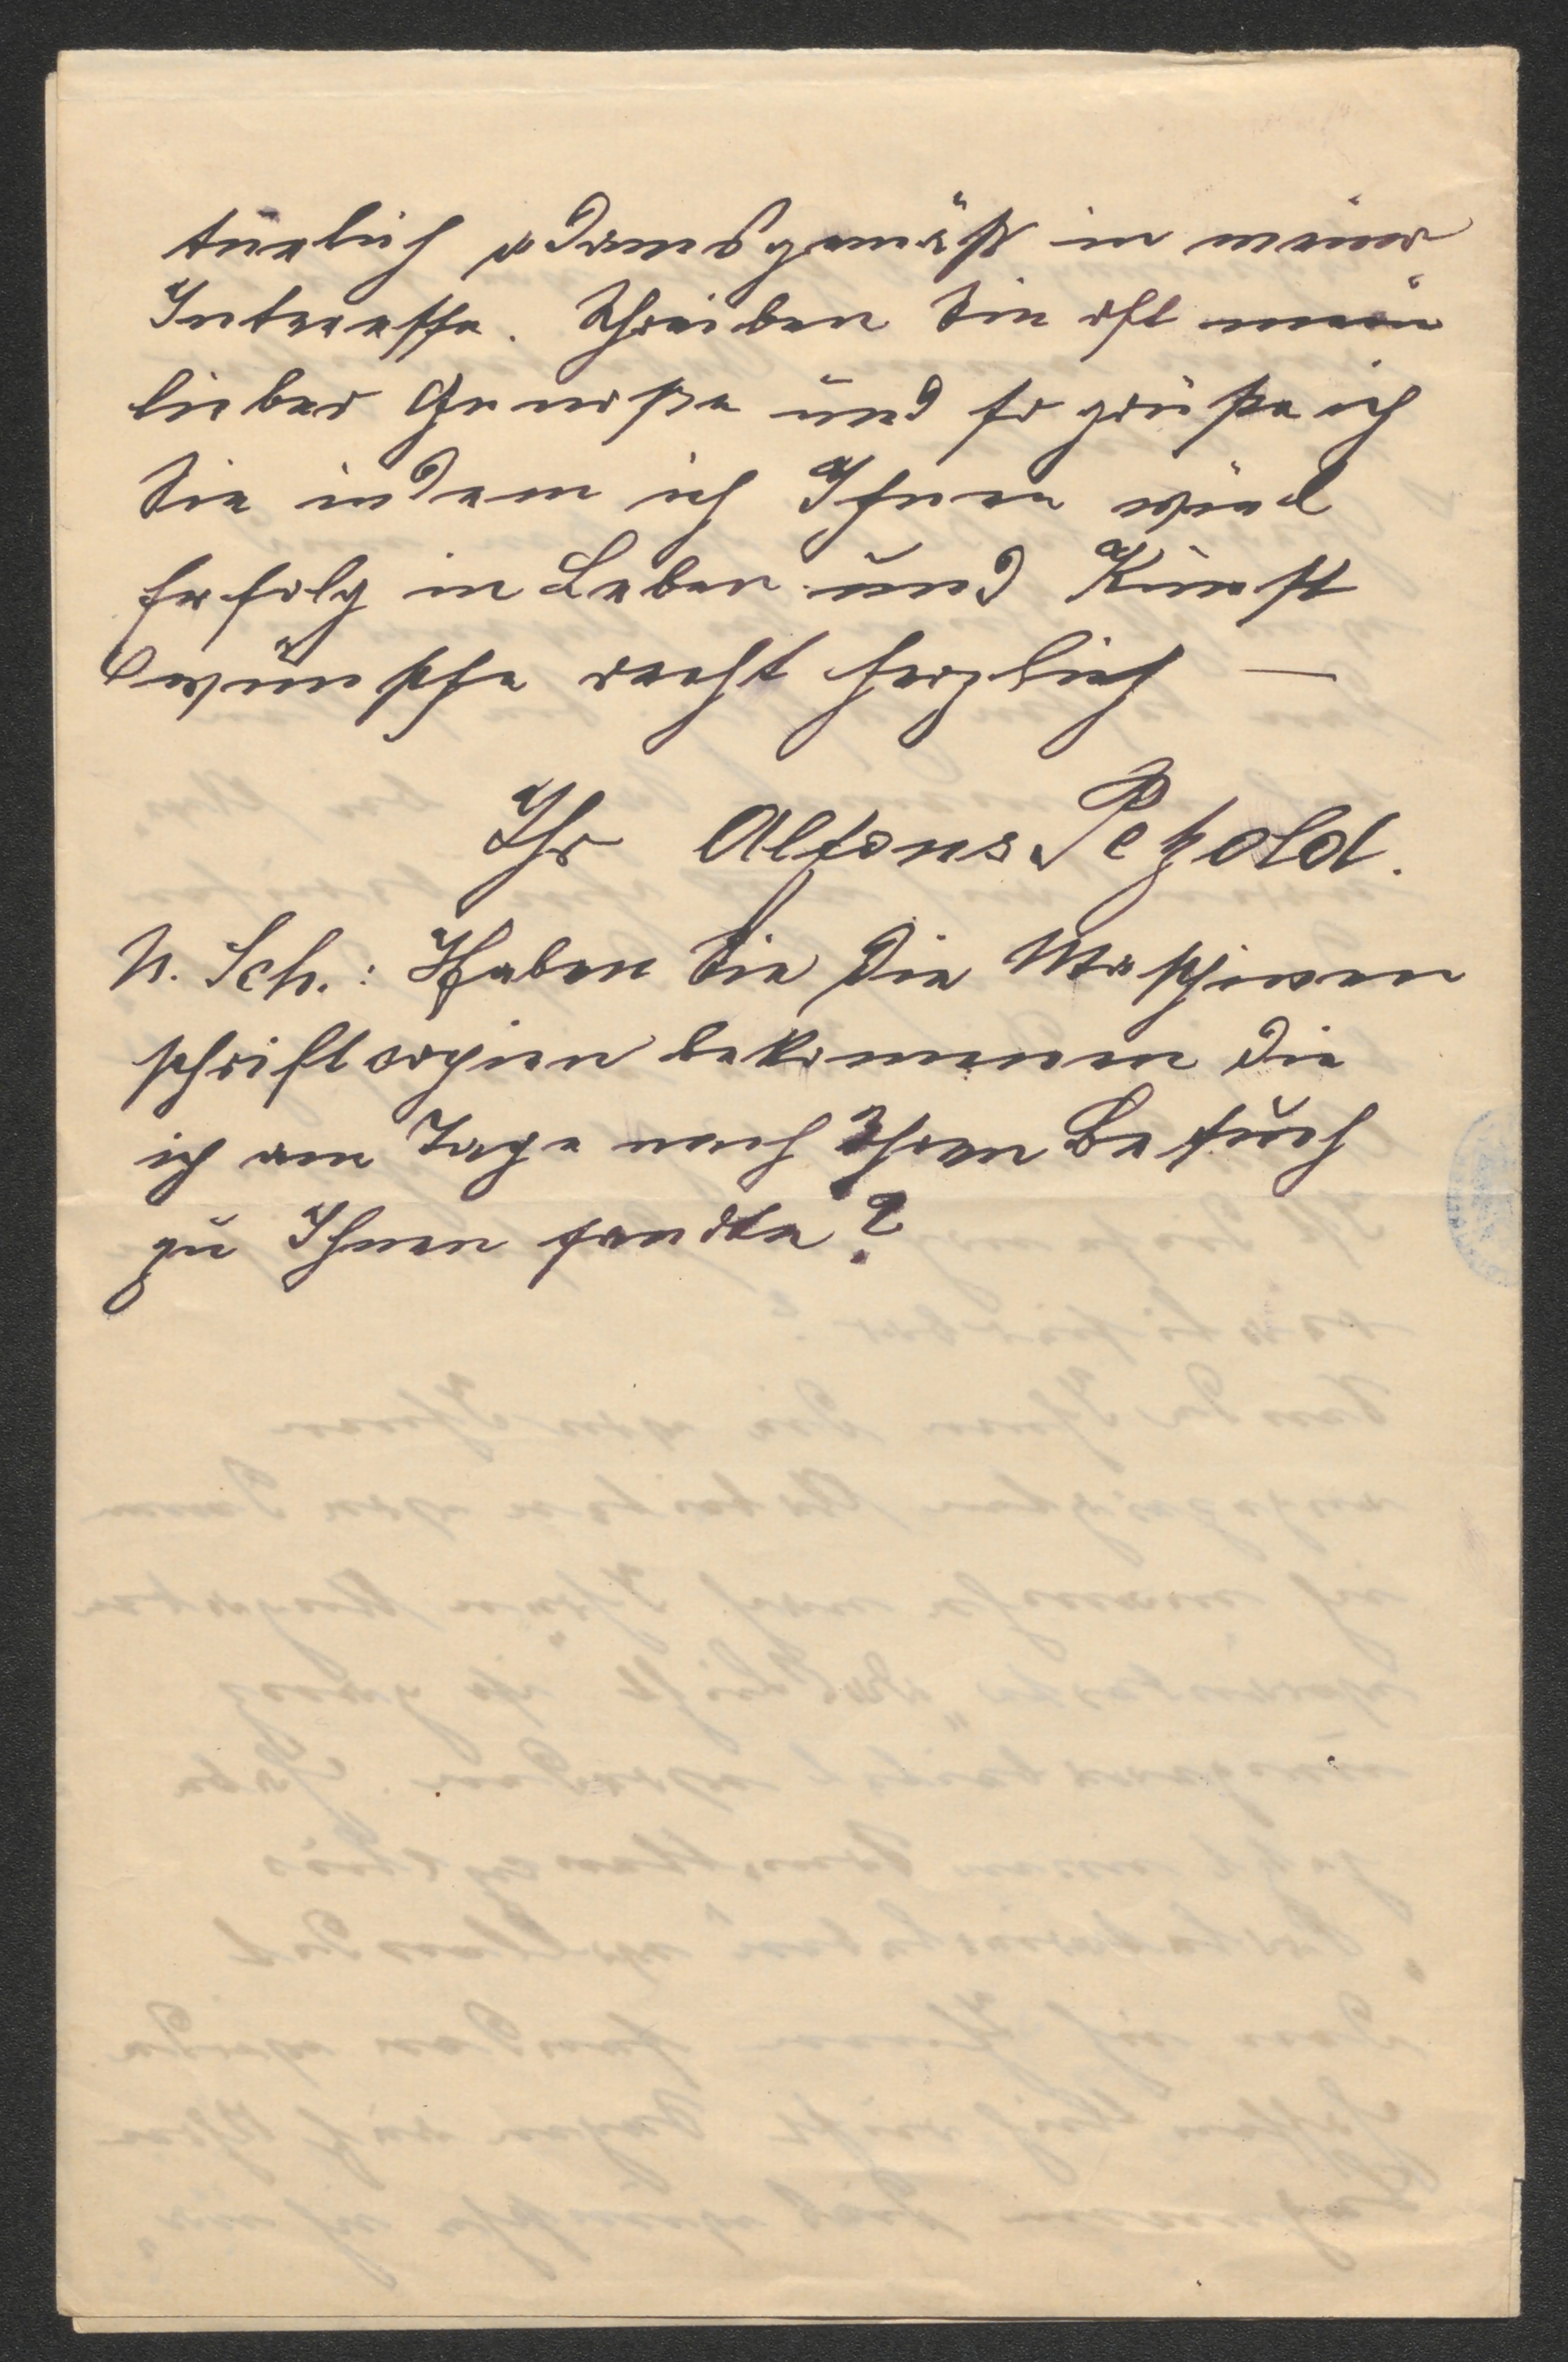 türlich adamsgemäß in meine
Interesse. Schreiben Sie oft mein
lieber Genosse und so grüße ich
Sie indem ich Ihnen viel
Erfolg in Leben und Kunst
wünsche recht herzlich —
Ihr Alfons Petzold.
N. Sch.: Haben Sie die Maschinen
schriftcopien bekommen die
ich am Tage nach Ihren Besuch
zu Ihnen sandte?